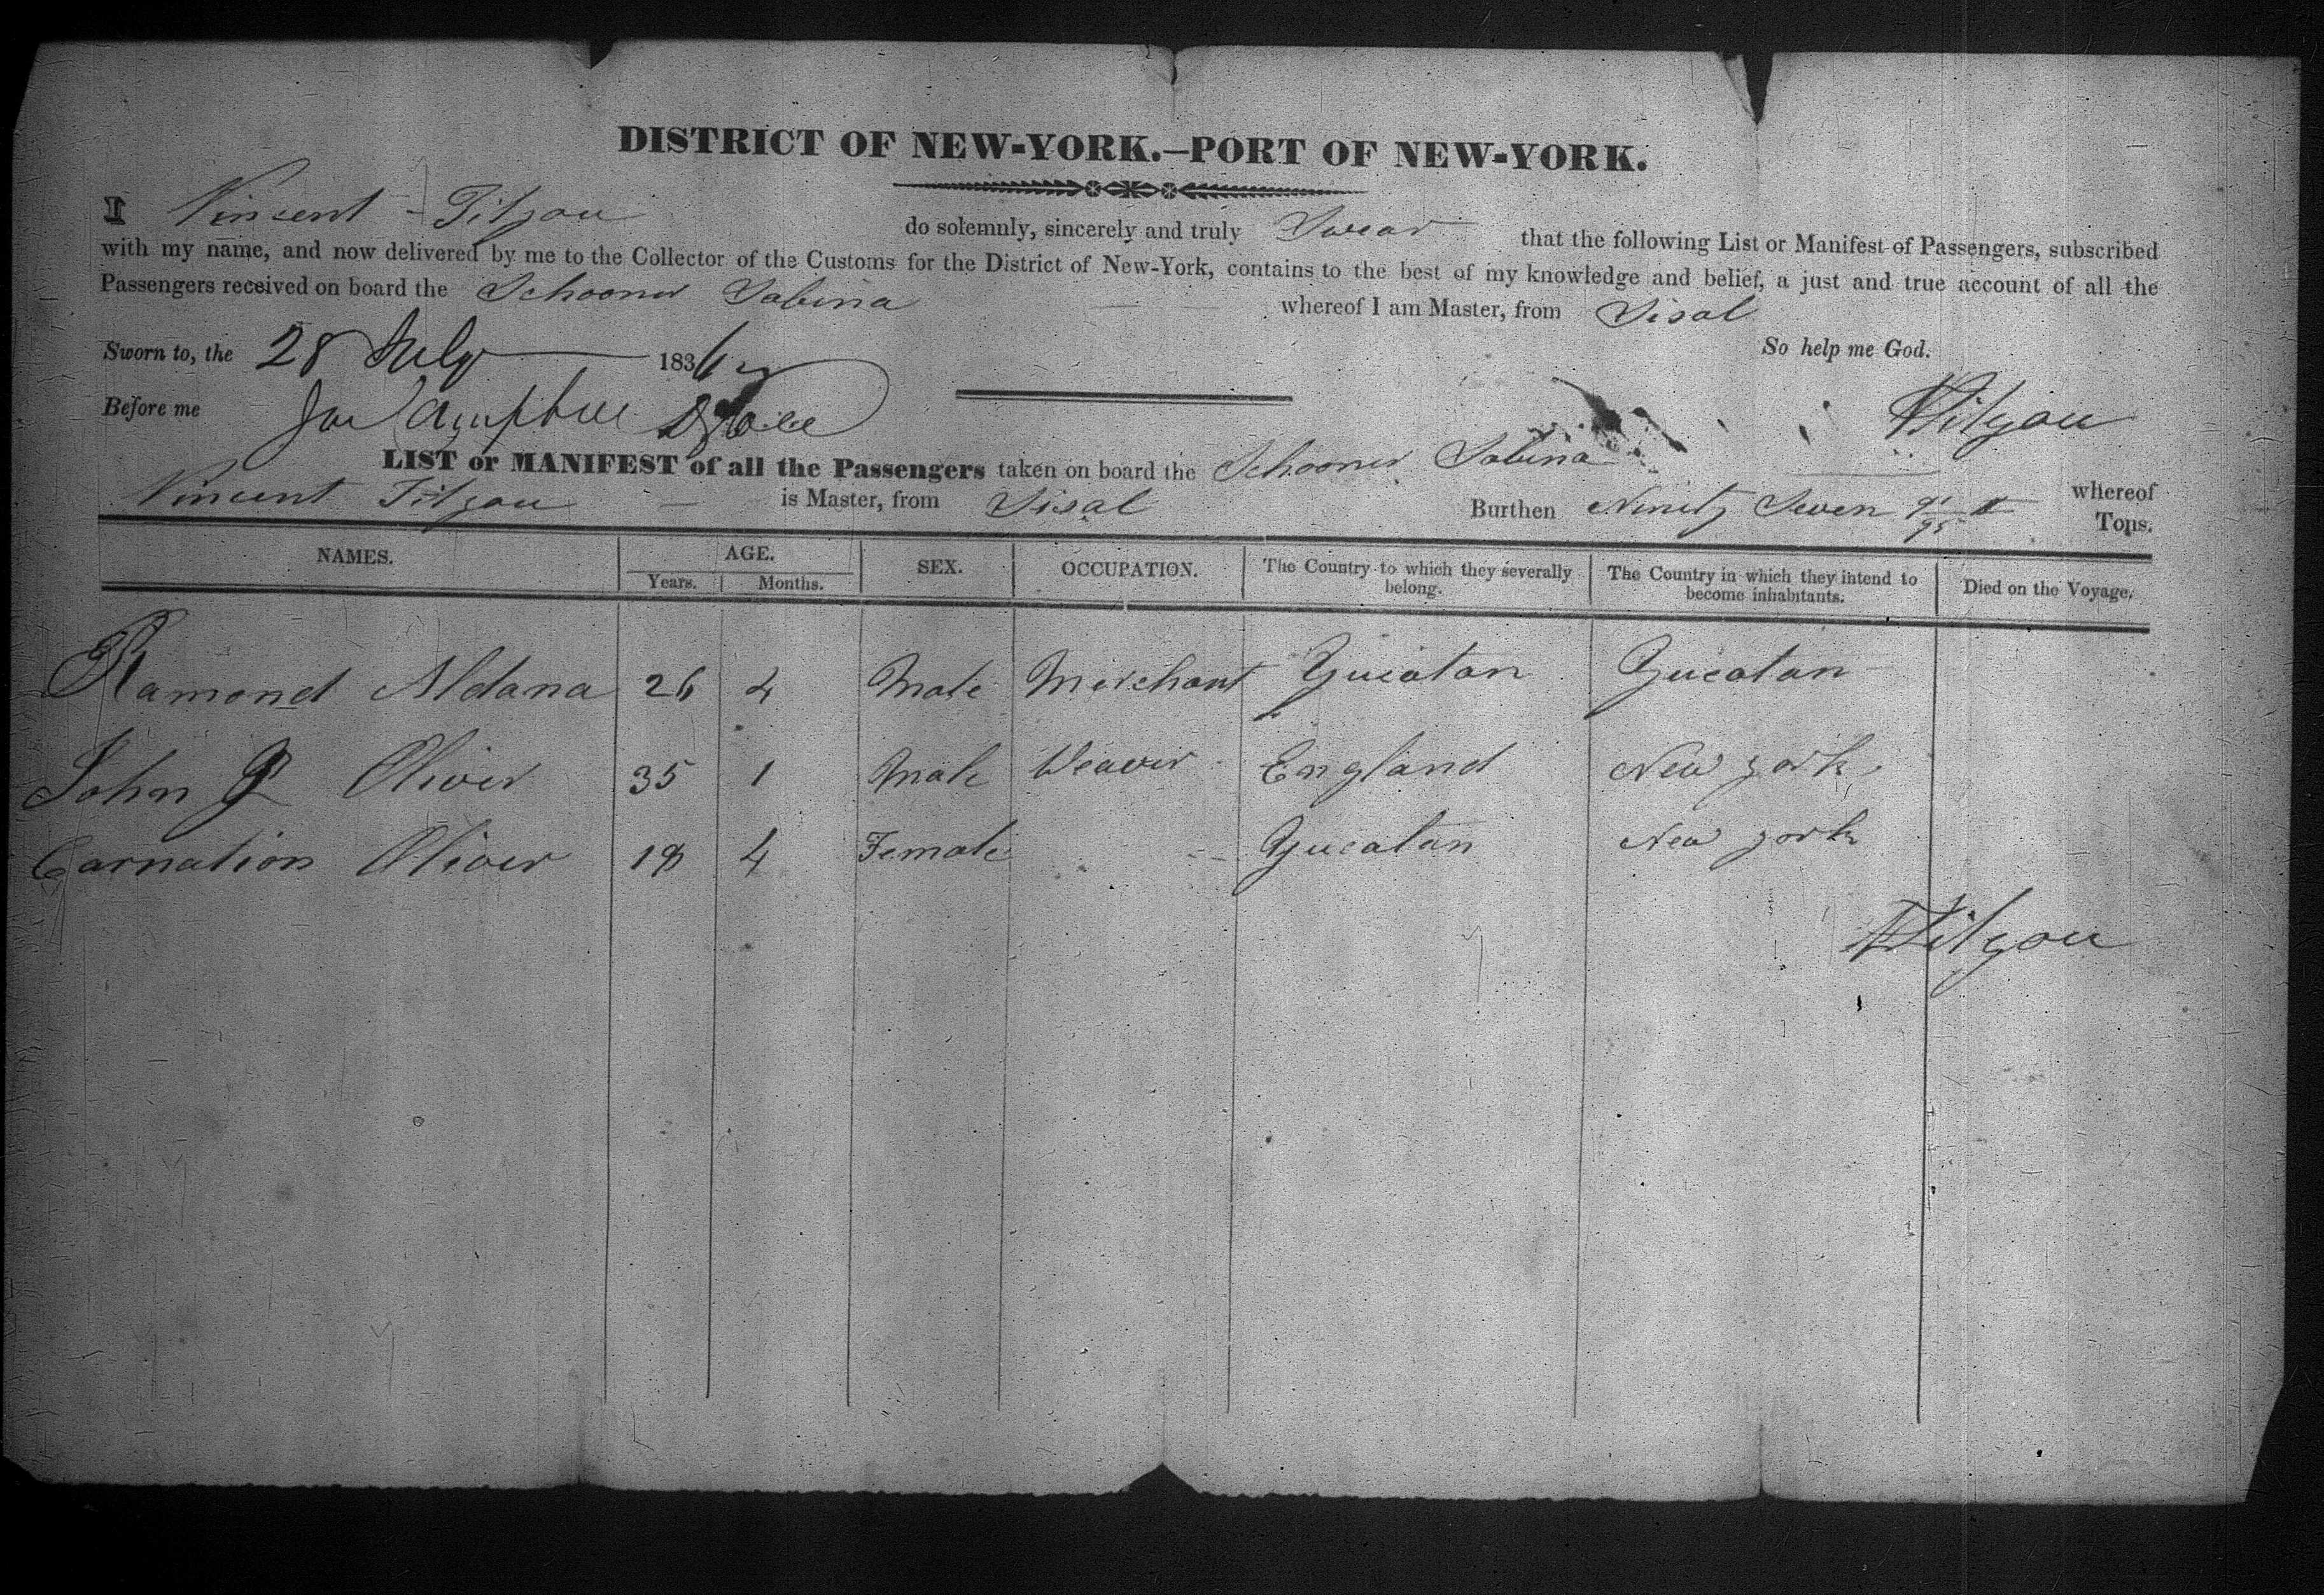 DISTRICT OF NEW-YORK.—PORT OF NEW-YORK.
I Vincent Fitzou do solemnly, sincerely and truly Swear that the following List or Manifest of Passengers, subscribed
with my name, and now delivered by me to the Collector of the Customs for the District of New-York, contains to the best of my knowledge and belief, a just and true account of all the
Passengers received on board the Schooner Sabina whereof I am Master, from Sisal
So help me God.
Sworn to, the 28 July 1836
Before me Campbell
LIST or MANIFEST of all the Passengers taken on board the Schooner Sabina whereof
Vincent Fitzou is Master, from Sisal Burthen Ninety Seven 91/95 Tons.
NAMES. AGE. SEX. OCCUPATION. The Country to which they severally belong. The Country in which they intend to become inhabitants. Died on the Voyage.
Years. Months.
Ramond Aldana 26 4 Male Merchant Yucatan Yucatan
John Oliver 35 1 Male Weaver England New york
Carnation Oliver 18 4 Female Yucatan New york